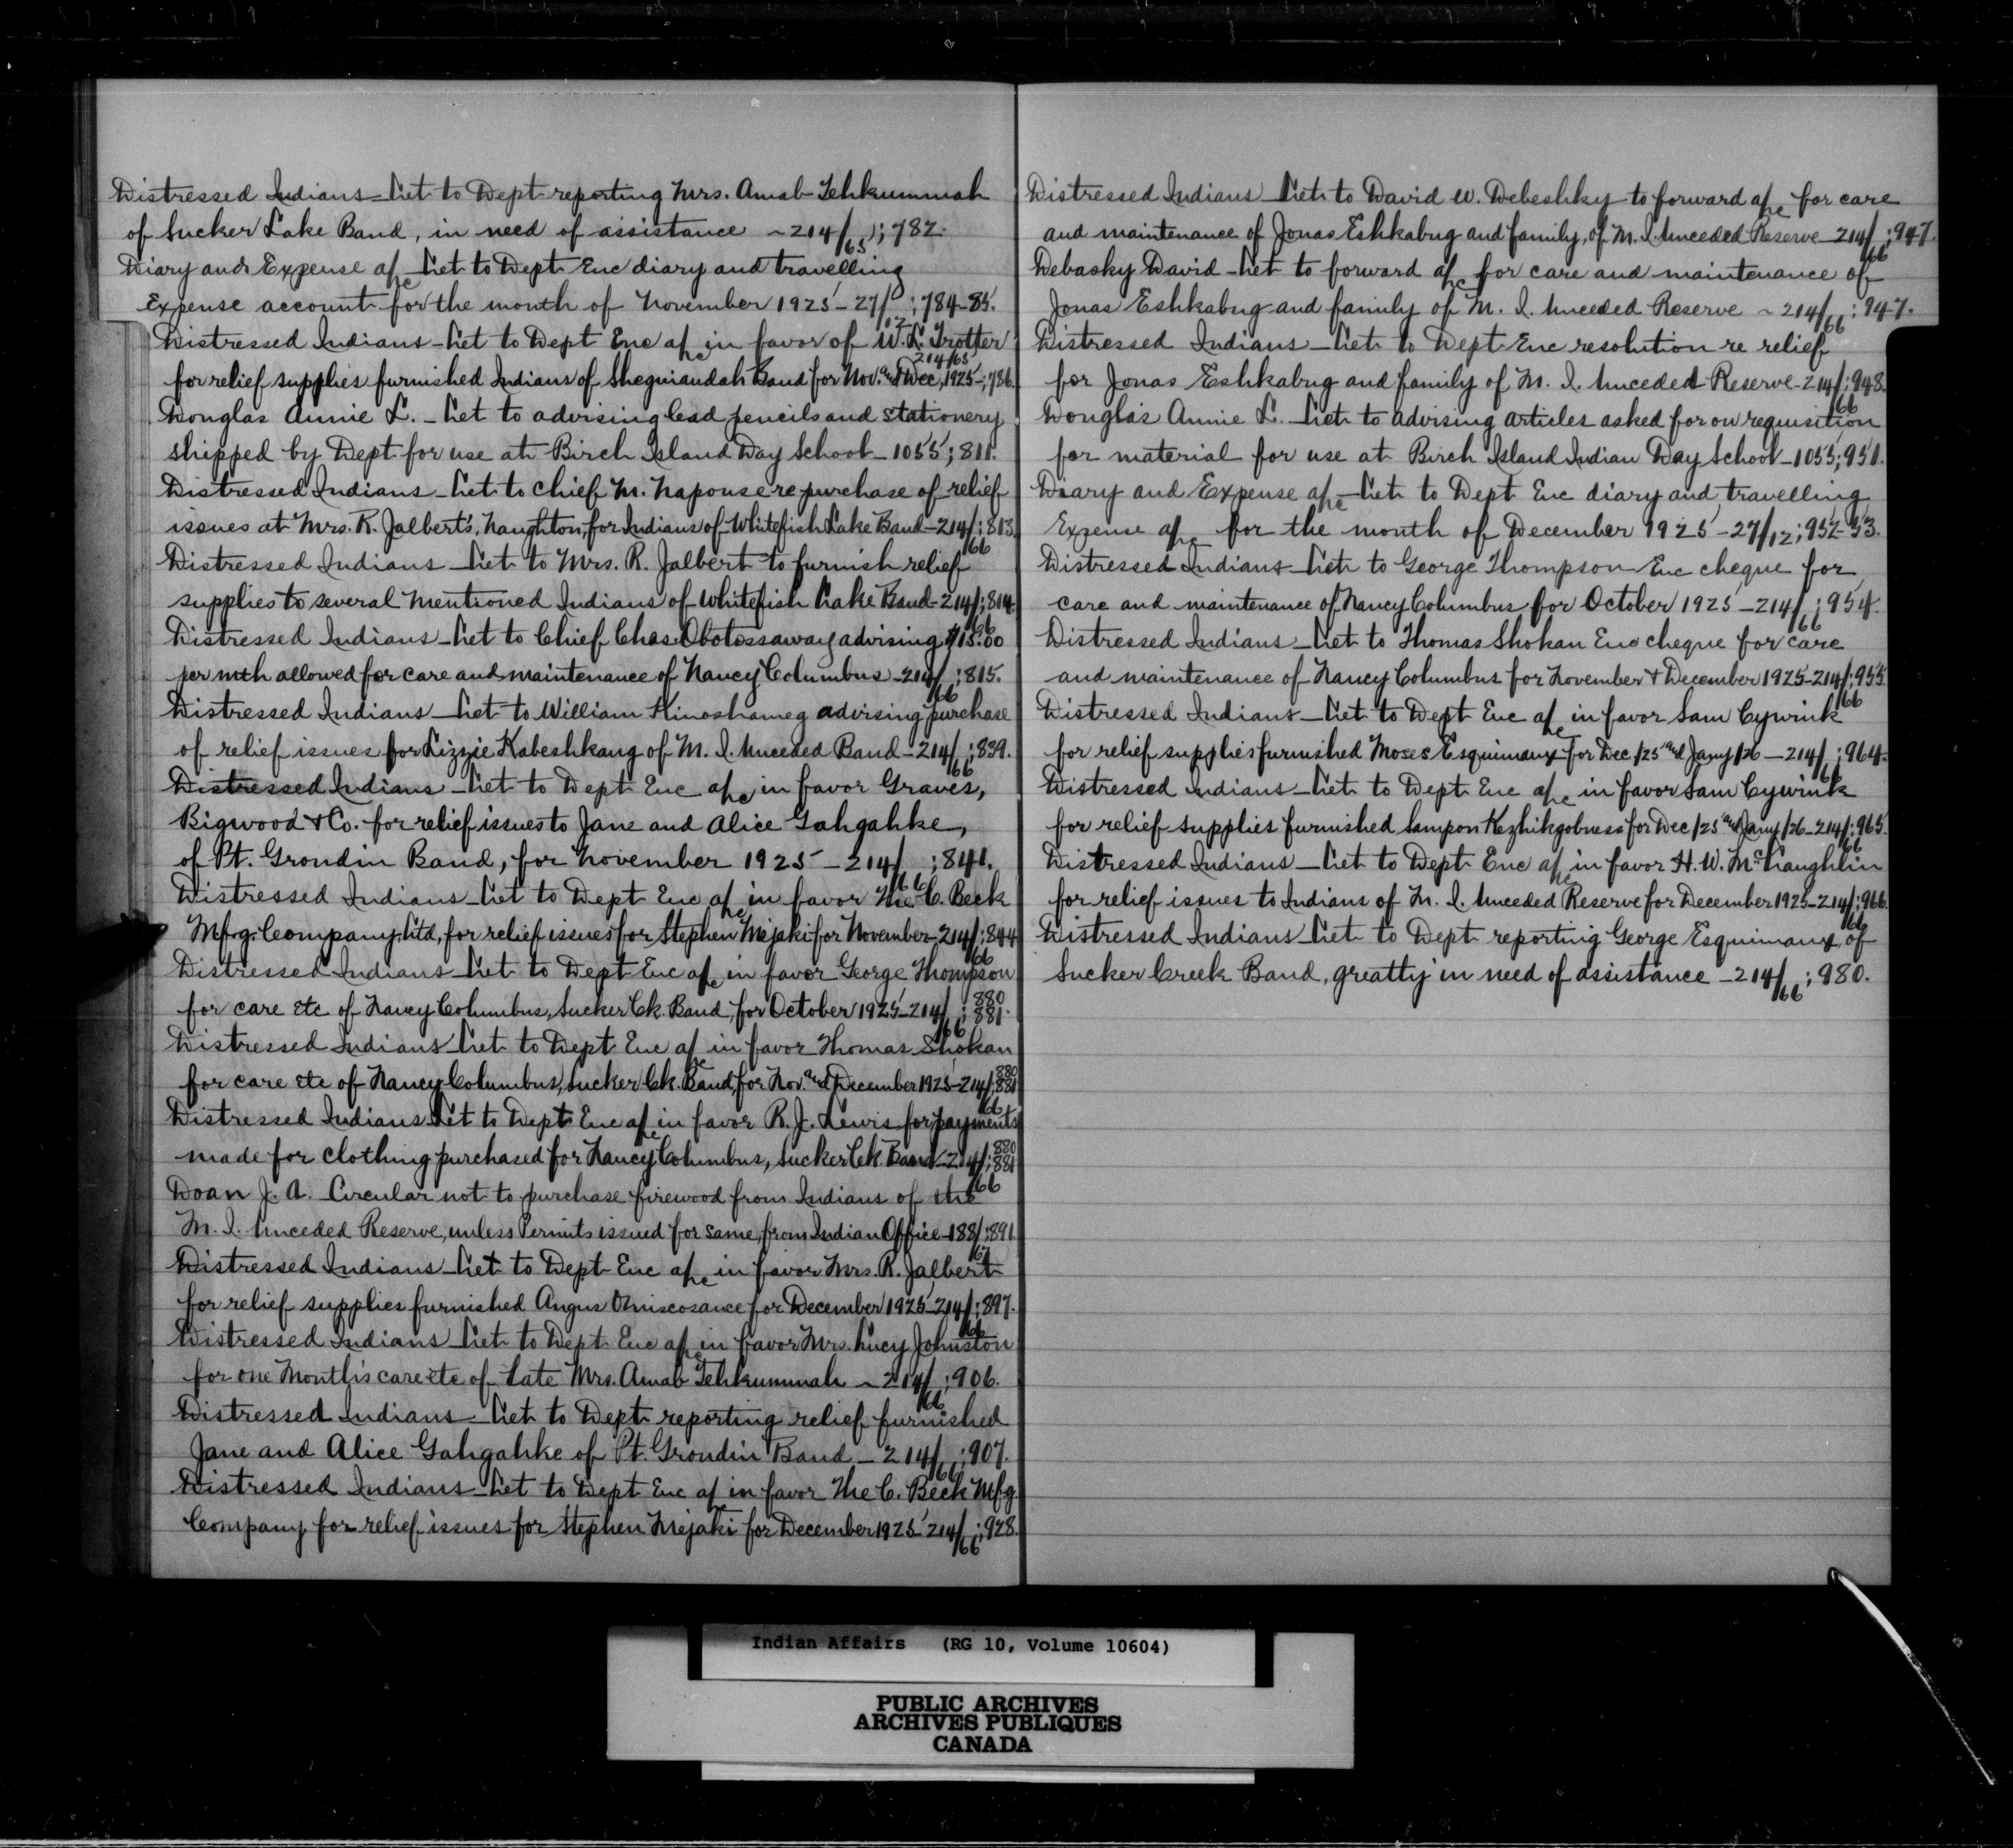 Distressed Indians - Let to Dept reporting Mrs. Amab Tehkummah
of Sucker Lake Band, in need of assistance - 214/65; 782.
Diary and Expense a/c - Let to Dept Enc diary and travelling
Expense account for the month of November 1925 - 27/12; 784-85.
Distressed Indians - Let to Dept Enc a/c in favor of W. L. Trotter
for relief supplies furnished Indians of Sheguiandah Band for Nov. and Dec, 1925 - 214/65; 786.
Douglas Annie L. - Let to advising lead pencils and stationery
shipped by Dept for use at Birch Island Day School - 1055; 811.
Distressed Indians - Let to Chief M. Napouse re purchase of relief
issues at Mrs. R. Jalbert's, Naughton, for Indians of Whitefish Lake Band - 214/66; 813
Distressed Indians - Let to Mrs. R. Jalbert to furnish relief
supplies to several mentioned Indians of Whitefish Lake Band - 214/66; 814.
Distressed Indians - Let to Chief Chas. Obotossaway advising $15.00
per mth allowed for care and maintenance of Nancy Columbus - 214/66; 815.
Distressed Indians - Let to William Kinoshameg advising purchase
of relief issues for Lizzie Kabeshkang of M. I. Unceded Band - 214/66; 839.
Distressed Indians - Let to Dept Enc a/c in favor Graves,
Bigwood & Co. for relief issues to Jane and Alice Gahgahke,
of Pt. Grondin Band, for November 1925 - 214/66; 841.
Distressed Indians - Let to Dept Enc a/c in favor The C. Beck
Mfg. Company, Ltd, for relief issues for Stephen Mejaki for November - 214/66; 844
Distressed Indians - Let to Dept Enc a/c in favor George Thompson
for care etc of Nancy Columbus, Sucker Ck. Band, for October 1925 - 214/66; 880 881.
Distressed Indians - Let to Dept Enc a/c in favor Thomas Shokan
for care etc of Nancy Columbus, Sucker Ck. Band, for Nov. and December 1925 - 214/66; 880 881
Distressed Indians - Let to Dept Enc a/c in favor R. J. Lewis for payments
made for clothing purchased for Nancy Columbus, Sucker Ck. Band - 214/66; 880 881
Doan J. A. - Circular not to purchase firewood from Indians of the
M. I. Unceded Reserve, unless Permits issued for same, from Indian Office - 188/67; 891.
Distressed Indians - Let to Dept Enc a/c in favor Mrs. R. Jalbert
for relief supplies furnished Angus Omiscosance for December 1925 - 214/66; 897.
Distressed Indians - Let to Dept Enc a/c in favor Mrs. Lucy Johnston
for one Month's care etc of late Mrs. Amab Tehkummah - 214/66; 906.
Distressed Indians - Let to Dept reporting relief furnished
Jane and Alice Gahgahke of Pt. Grondin Band - 214/66; 907.
Distressed Indians - Let to Dept Enc a/c in favor The C. Beck Mfg.
Company for relief issues for Stephen Mejaki for December 1925 214/66; 928.
Distressed Indians - Let to David W. Debeshky to forward a/c for care
and maintenance of Jonas Eshkabug and family, of M. I. Unceded Reserve - 214/66; 947.
Debasky David - Let to forward a/c for care and maintenance of
Jonas Eshkabug and family of M. I. Unceded Reserve - 214/66; 947.
Distressed Indians - Let to Dept Enc resolution re relief
for Jonas Eshkabug and family of M. I. Unceded Reserve - 214/66; 948.
Douglas Annie L. - Let to advising articles asked for on requisition
for material for use at Birch Island Indian Day School - 1055; 951.
Diary and Expense a/c - Let to Dept Enc diary and travelling
Expense a/c for the month of December 1925 - 27/12; 952-53.
Distressed Indians - Let to George Thompson Enc cheque for
care and maintenance of Nancy Columbus for October 1925 - 214/66; 954.
Distressed Indians - Let to Thomas Shokan Enc cheque for care
and maintenance of Nancy Columbus for November & December 1925 - 214/66; 955.
Distressed Indians - Let to Dept Enc a/c in favor Sam Cywink
for relief supplies furnished Moses Esquimaux for Dec/25 and Jany/26 - 214/66; 964.
Distressed Indians - Let to Dept Enc a/c in favor Sam Cywink
for relief supplies furnished Sampson Kezhikgobness for Dec/25 and Jany/26 - 214/66; 965.
Distressed Indians - Let to Dept Enc a/c in favor H. W. McLaughlin
for relief issues to Indians of M. I. Unceded Reserve for December 1925 - 214/66; 966.
Distressed Indians - Let to Dept reporting George Esquimaux, of
Sucker Creek Band, greatly in need of assistance - 214/66; 980.
Indian Affairs (RG 10, Volume 10604)
PUBLIC ARCHIVES
ARCHIVES PUBLIQUES
CANADA